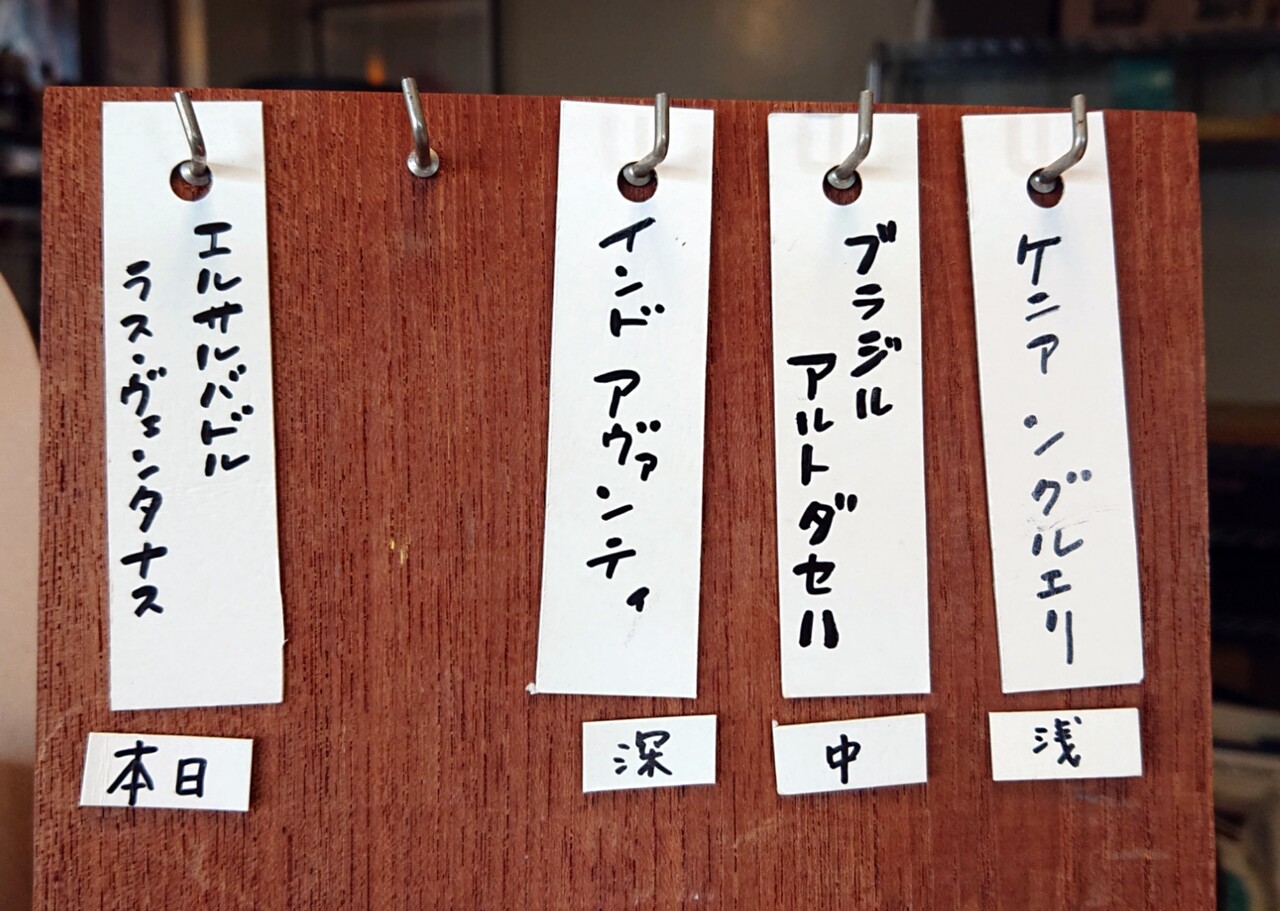 ケニア ングルエリ
浅
ブラジル
アルトダセハ
中
インド アヴァンティ
深
エルサルバドル
ラス・ヴェンタナス
本日